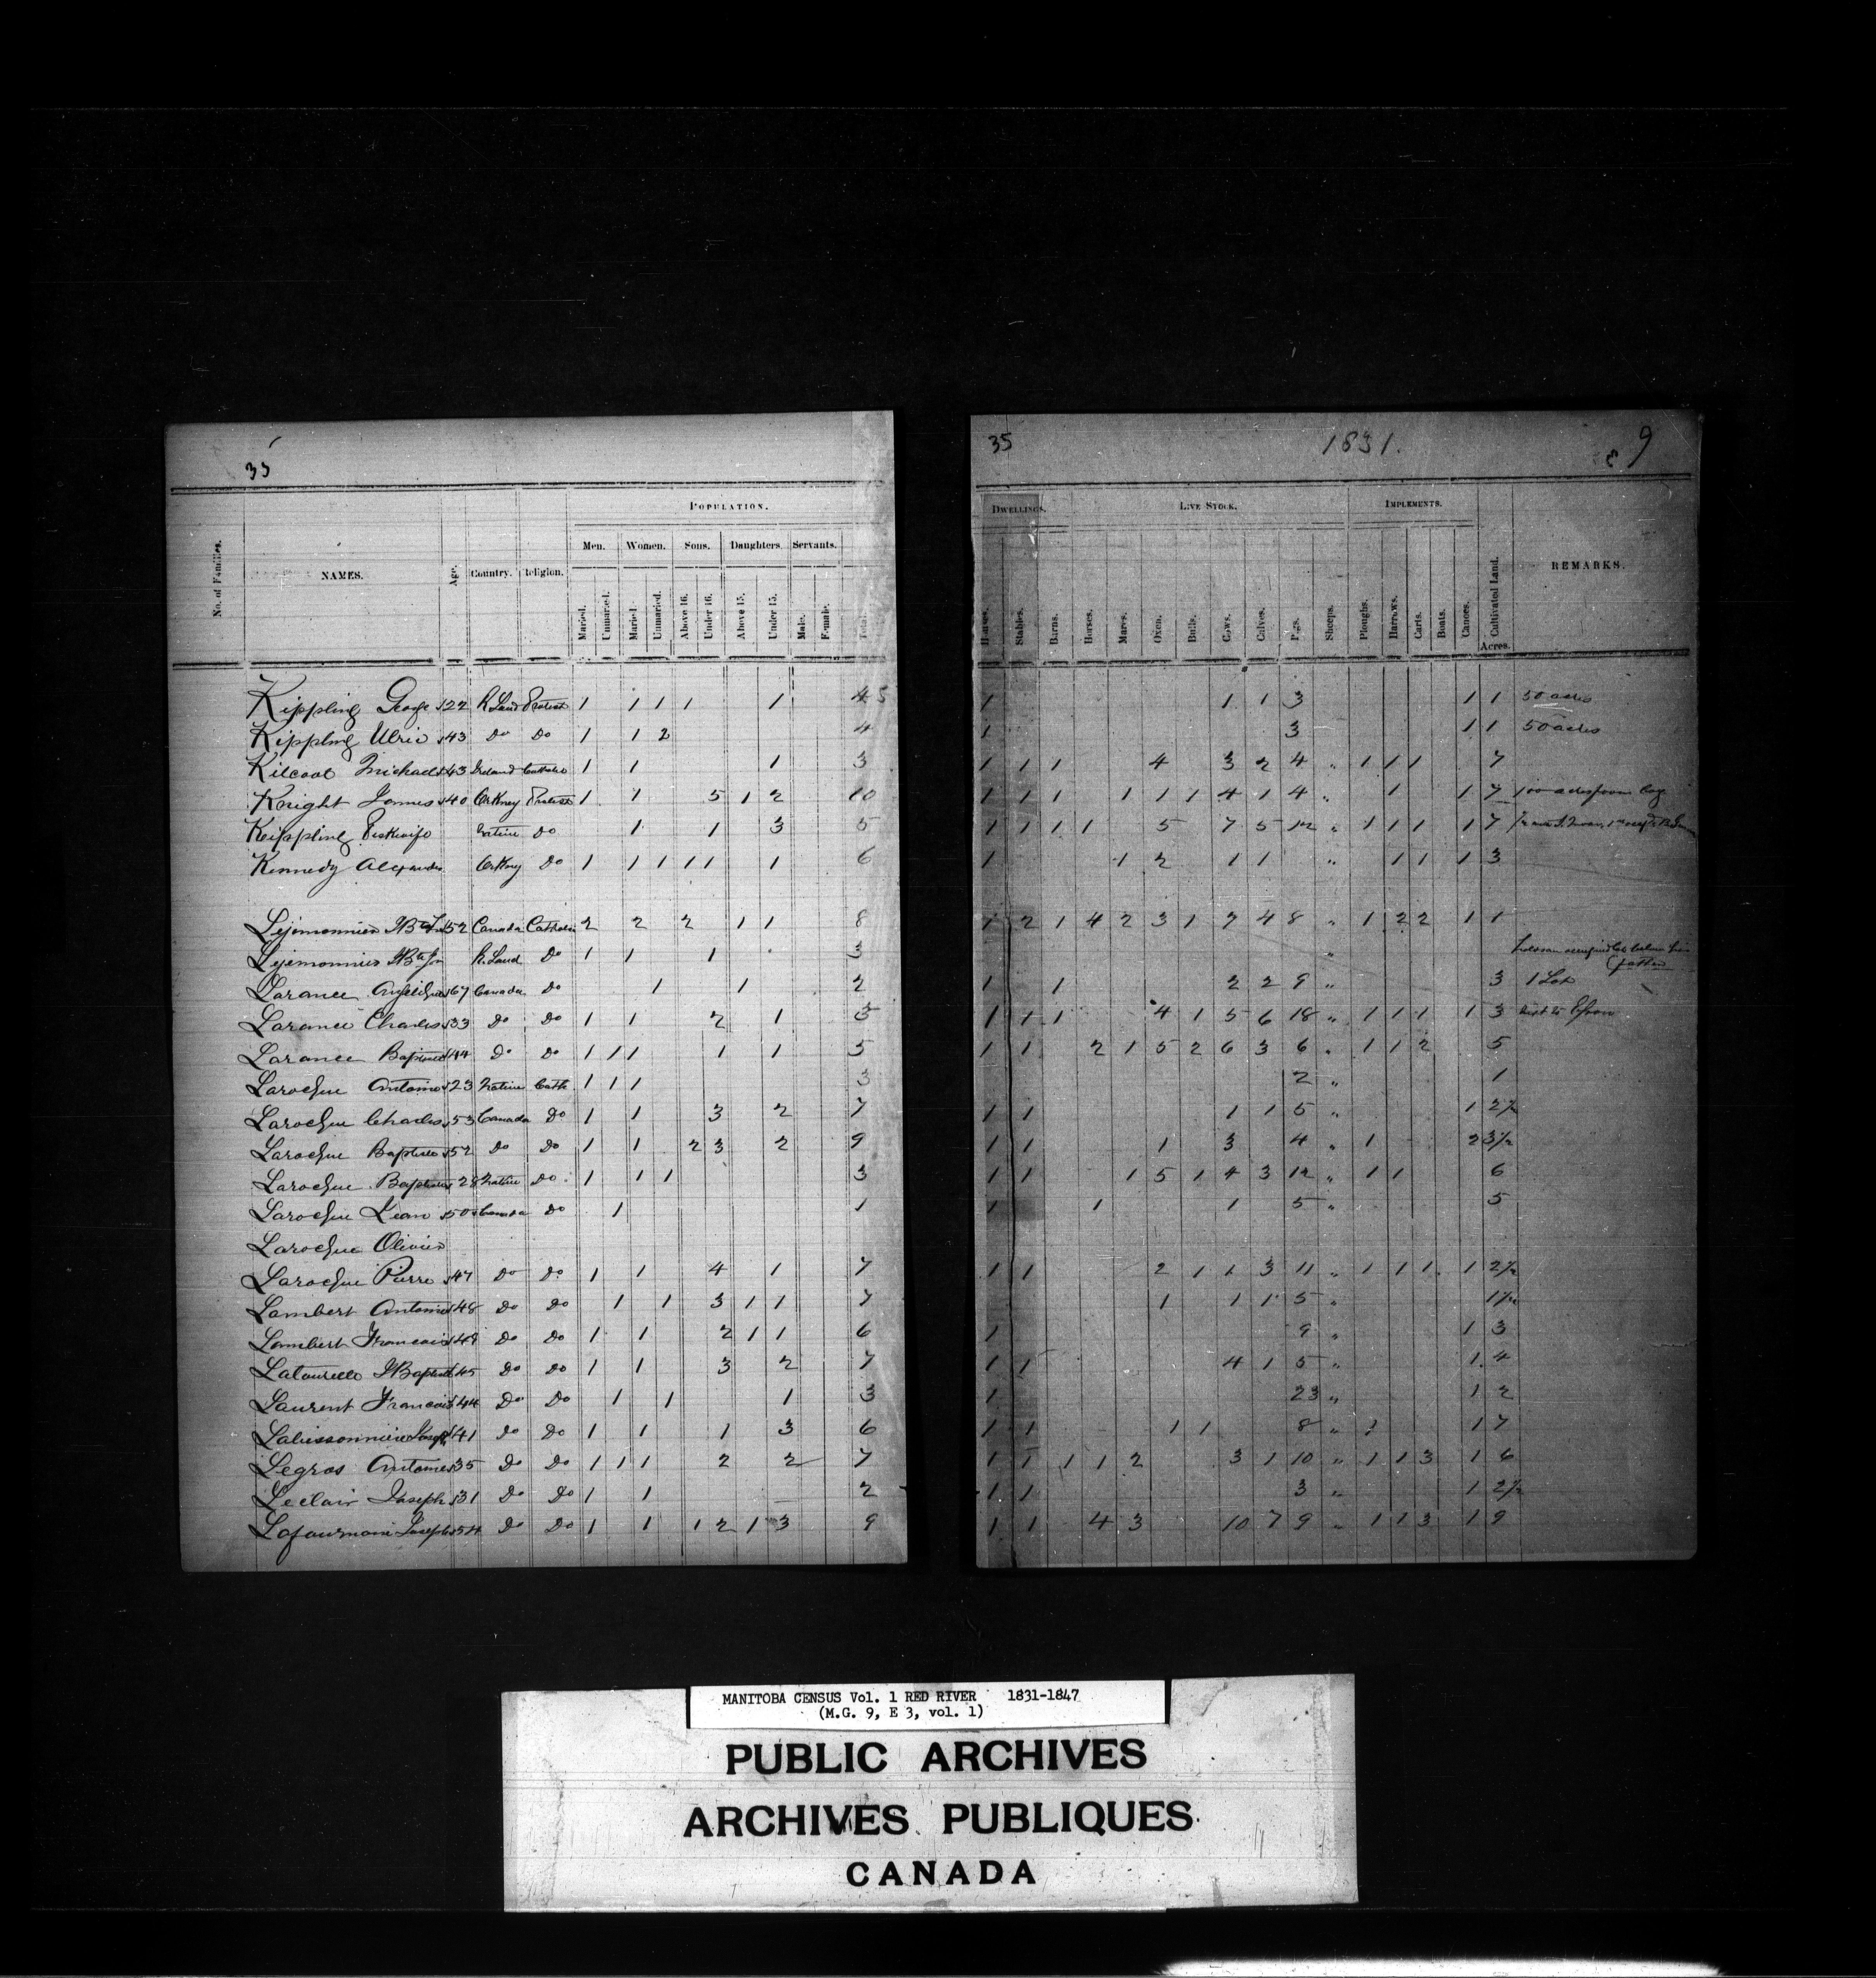 35
POPULATION.
Men. Women. Sons. Daughters. Servants.
No. of Families. NAMES. Age. Country. Religion.
Married. Unmarried. Married. Unmarried. Above 16. Under 16. Above 15. Under 15. Male. Female. Total.
Kippling George 22 R. Land Protest 1 1 1 1 1 4 5
Kippling Ulric 43 Do Do 1 1 2 4
Kilcoat Michael 43 Ireland Catholic 1 1 1 3
Knight James 40 Orkney Protest 1 1 5 1 2 10
Kippling Native Do 1 1 3 5
Kennedy Alexander Orkney Do 1 1 1 1 1 1 6
Lejemonnier 52 Canada Catholic 2 2 2 1 1 8
Lejemonnier Bte Jn R. Land Do 1 1 1 3
Larance Angelique 67 Canada Do 1 1 2
Larance Charles 33 Do Do 1 1 2 1 5
Larance Baptiste 44 Do Do 1 1 1 1 1 5
Laroque Antoine 23 Native Cath 1 1 1 3
Laroque Charles 53 Canada Do 1 1 3 2 7
Laroque Baptiste 52 Do Do 1 1 2 3 2 9
Laroque Baptiste 28 Native Do 1 1 1 3
Laroque Jean 50 Canada Do 1 1
Laroque Olivier
Laroque Pierre 47 Do Do 1 1 4 1 7
Lambert Antoine 48 Do Do 1 1 3 1 1 7
Lambert Francois 49 Do Do 1 1 2 1 1 6
Latourelle J Baptiste 45 Do Do 1 1 3 2 7
Laurent Francois 44 Do Do 1 1 1 3
Labissonniere Joseph 41 Do Do 1 1 1 3 6
Legros Antoine 35 Do Do 1 1 1 2 2 7
Leclair Joseph 31 Do Do 1 1 2
Lafournani Joseph 54 Do Do 1 1 1 2 1 3 9
35 1831. 9
DWELLINGS. LIVE STOCK. IMPLEMENTS.
Houses. Stables. Barns. Horses. Mares. Oxen. Bulls. Cows. Calves. Pigs. Sheeps. Ploughs. Harrows. Carts. Boats. Canoes. Cultivated Land. REMARKS.
Acres.
1 1 1 3 1 1 50 acres
1 3 1 1 50 acres
1 1 1 4 3 2 4 " 1 1 1 7
1 1 1 1 1 1 4 1 4 " 1 1 7 100 acres from Coy
1 1 1 1 5 7 5 12 " 1 1 1 1 7
1 1 2 1 1 " 1 1 1 3
1 2 1 4 2 3 1 7 4 8 " 1 2 2 1 1
"
father
1 1 2 2 9 " 3 1 Lot
1 1 1 4 1 5 6 18 " 1 1 1 1 3
1 1 2 1 5 2 6 3 6 " 1 1 2 5
2 " 1
1 1 1 1 5 " 1 2½
1 1 1 3 4 " 1 2 3½
1 1 1 5 1 4 3 12 " 1 1 6
1 1 1 5 " 5
1 1 2 1 1 3 11 " 1 1 1 1 2½
1 1 1 5 " 1½
1 9 " 1 3
1 1 4 1 5 " 1 4
1 23 " 1 2
1 1 1 1 8 " 1 1 7
1 1 1 1 2 3 1 10 " 1 1 3 1 6
1 1 3 " 1 2½
1 1 4 3 10 7 9 " 1 1 3 1 9
MANITOBA CENSUS Vol. 1 RED RIVER 1831-1847
(M.G. 9, E 3, vol. 1)
PUBLIC ARCHIVES
ARCHIVES PUBLIQUES
CANADA